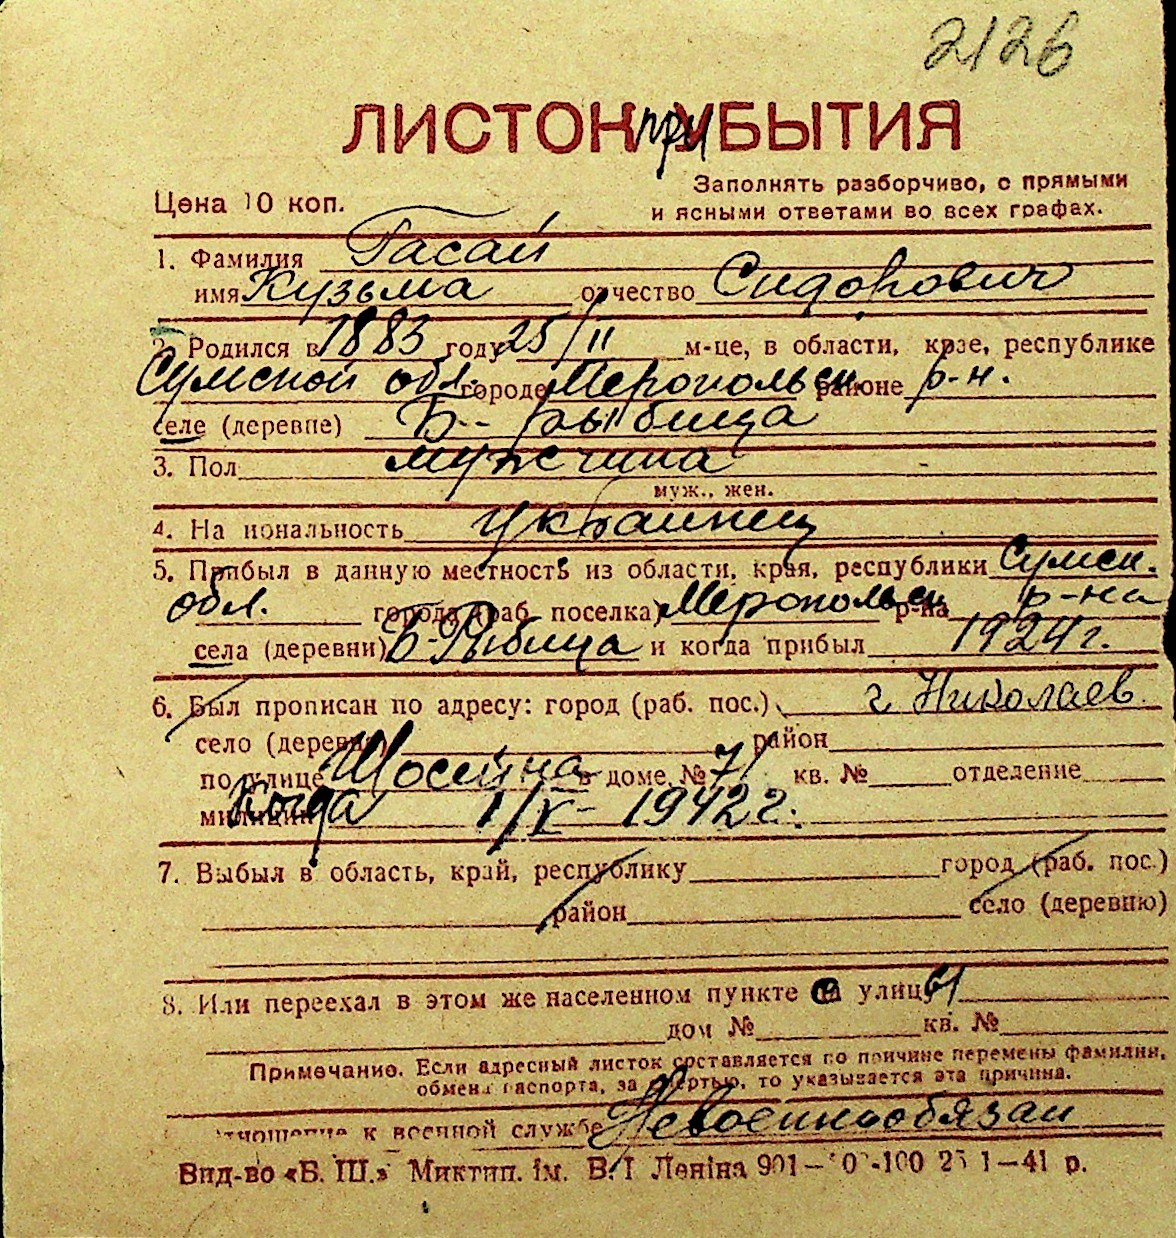 2126
ЛИСТОК при УБЫТИЯ
Цена 10 коп.
Заполнять разборчиво, с прямыми
и ясными ответами во всех графах.
1. Фамилия Гасай
имя Кузьма отчество Сидорович
2. Родился в 1883 году 25/II м-це, в области, крае, республике
Сумской обл. городе Меропольск. районе р-н.
селе (деревне) Б-Рыбица
3. Пол мужчина
муж., жен.
4. Национальность украинец
5. Прибыл в данную местность из области, края, республики Сумск.
обл. города (раб. поселка) Меропольск р-на р-на
села (деревни) Б-Рыбица и когда прибыл 1924 г.
6. Был прописан по адресу: город (раб. пос.) г. Николаев.
село (деревня) район
по улице Шосейна в доме № 71 кв. № отделение
милиции Когда 1/X - 1942 г.
7. Выбыл в область, край, республику город (раб. пос.)
район село (деревню)
8. Или переехал в этом же населенном пункте с улицы
дом № кв. №
Примечание. Если адресный листок составляется по причине перемены фамилии,
обмена паспорта, за смертью, то указывается эта причина.
отношение к военной службе Невоеннообязан
Вид-во «Б. Ш.» Миктип. ім. В. І Леніна 901— 1—41 р.